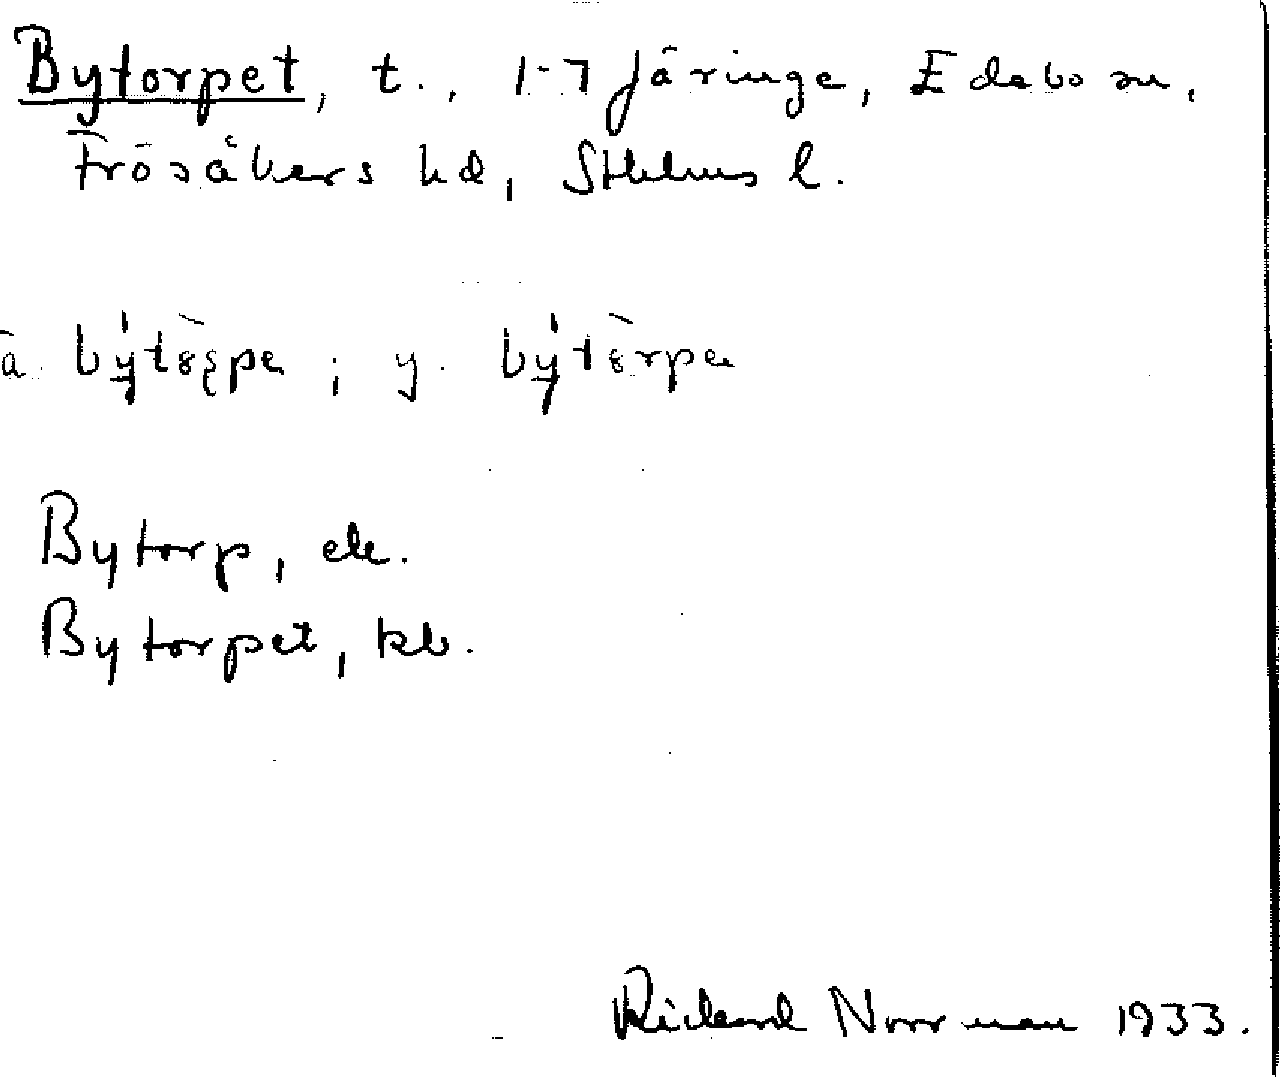 Bytorpet, t., 1-7 Järinge, Edebo sn,
Frösåkers hd, Sthlms l.
ä. by̍tɷ̀rpe ; y. by̍tɷ̀rpe
Bytorp, ek.
Bytorpet, kb.
Rickard Norrman 1933.